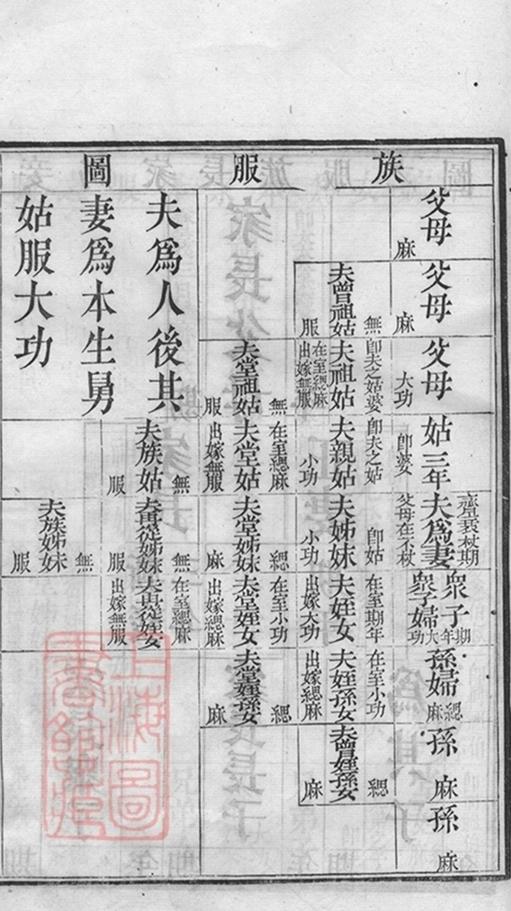 族服圖
父母
麻
父母
麻
父母
大功
姑三年
卽婆
齊衰杖期
夫爲妻
父母在不杖
衆子期年
衆子婦大功
孫婦緦麻
孫
麻
孫
麻
無
夫曾祖姑
服
卽夫之姑婆
夫祖姑
在室緦麻
出嫁無服
卽夫之姑
夫親姑
小功
卽姑
夫姊妹
小功
在室期年
夫姪女
出嫁大功
在室小功
夫姪孫女
出嫁緦麻
緦
夫曾姪孫女
麻
無
夫堂祖姑
服
在室緦麻
夫堂姑
出嫁無服
緦
夫堂姊妹
麻
在室小功
夫堂姪女
出嫁緦麻
緦
夫堂姪孫女
麻
無
夫族姑
服
無
夫再從姊妹
服
在室緦麻
夫再從姪女
出嫁無服
無
夫族姊妹
服
夫爲人後其
妻爲本生舅
姑服大功
上海圖
書館藏